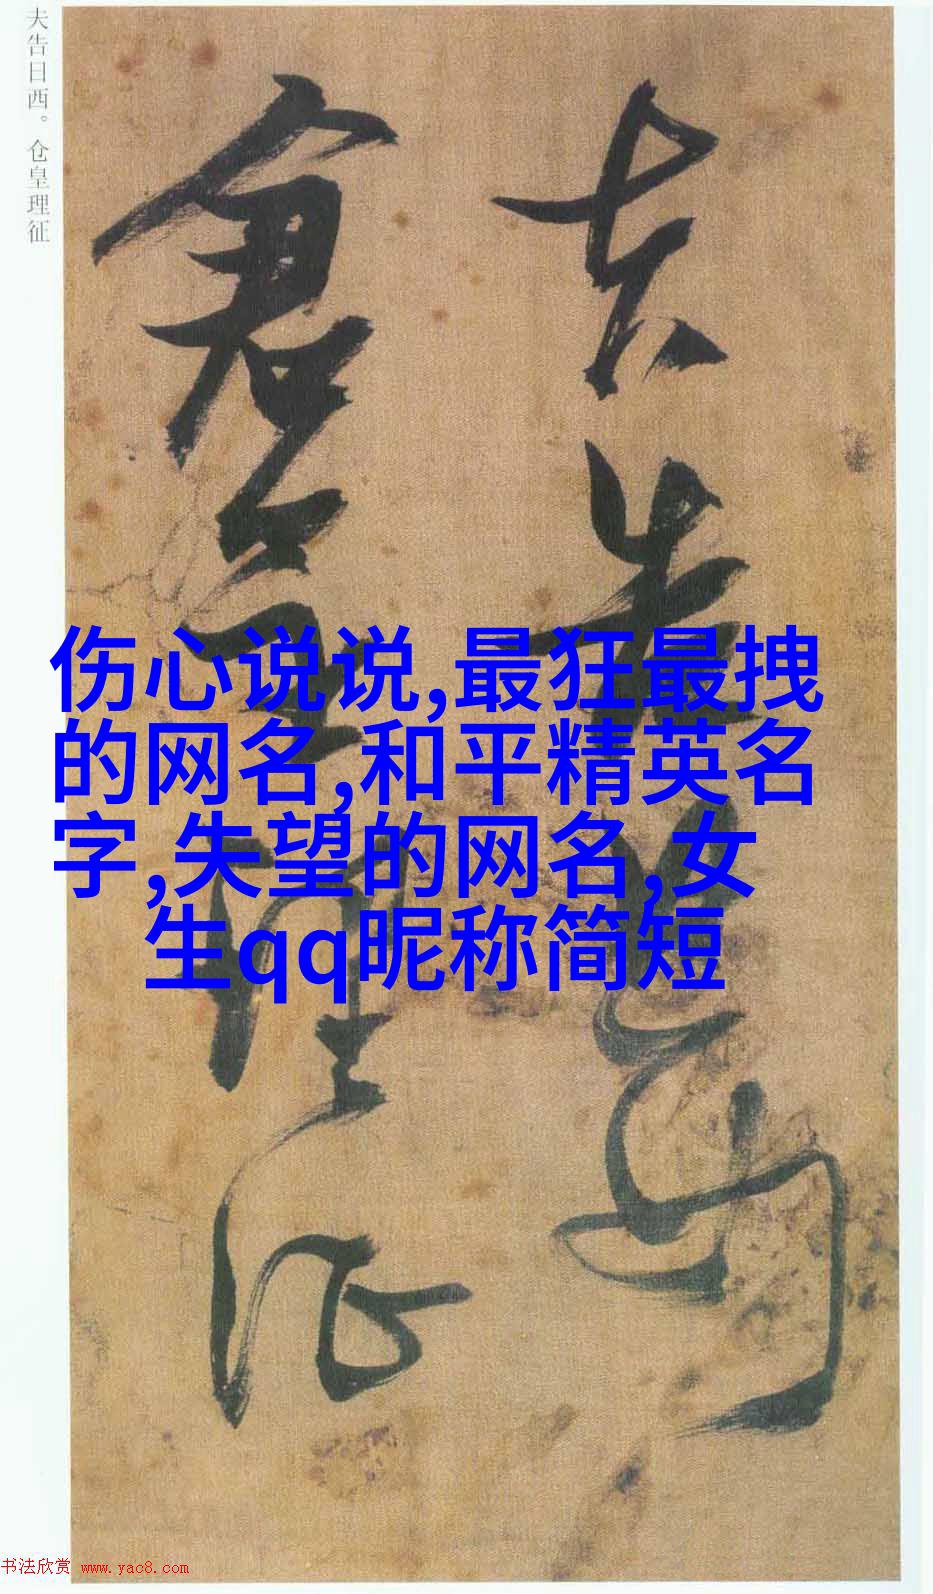 夫告日西。仓皇理征
夫告日西
倉皇理征
伤心说说,最狂最拽
的网名,和平精英名
字,失望的网名,女
生qq昵称简短
书法欣赏 www.yac8.com